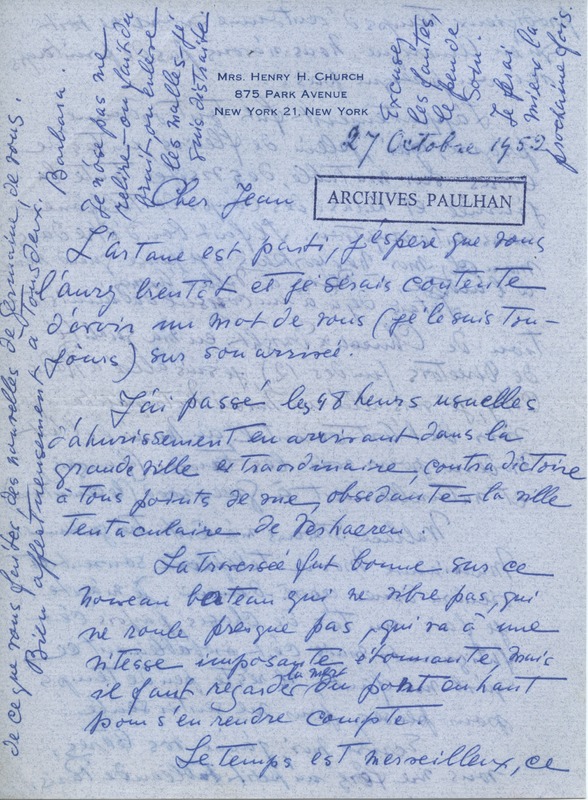 MRS. HENRY H. CHURCH
875 PARK AVENUE
NEW YORK 21, NEW YORK
27 Octobre 1952
ARCHIVES PAULHAN
Cher Jean
L'artane est parti, j'espère que vous
l'aurez bientôt et je serais contente
d'avoir un mot de vous (je le suis tou-
jours) sur son arrivée.
J'ai passé les 48 heures usuelles
d'ahurissement en arrivant dans la
grande ville extraordinaire, contradictoire
à tous points de vue, obsédante = la ville
tentaculaire de Verhaeren
La traversée fut bonne sur ce
nouveau bateau qui ne vibre pas, qui
ne roule presque pas, qui va à une
vitesse imposante étonnante, mais
il faut regarder la mer du pont en haut
pour s'en rendre compte
Le temps est merveilleux, ce
de ce que vous faites, des nouvelles de Germaine, de vous.
Bien affectueusement à tous deux. Barbara.
Je n'ose pas me
relire – on fait du
bruit on enlève
les malles je
suis distraite.
Excusez
les fautes,
le peu de
soin.
Je ferai
mieux la
prochaine fois.